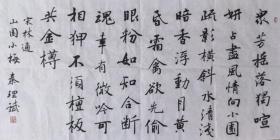 众芳摇落独暄
妍占尽风情向小园
疏影横斜水清浅
暗香浮动月黄
昏霜禽欲先偷
眼粉蝶如知合断
魂幸有微吟可
相狎不须檀板
共金樽
宋林逋
山园小梅 秦理斌